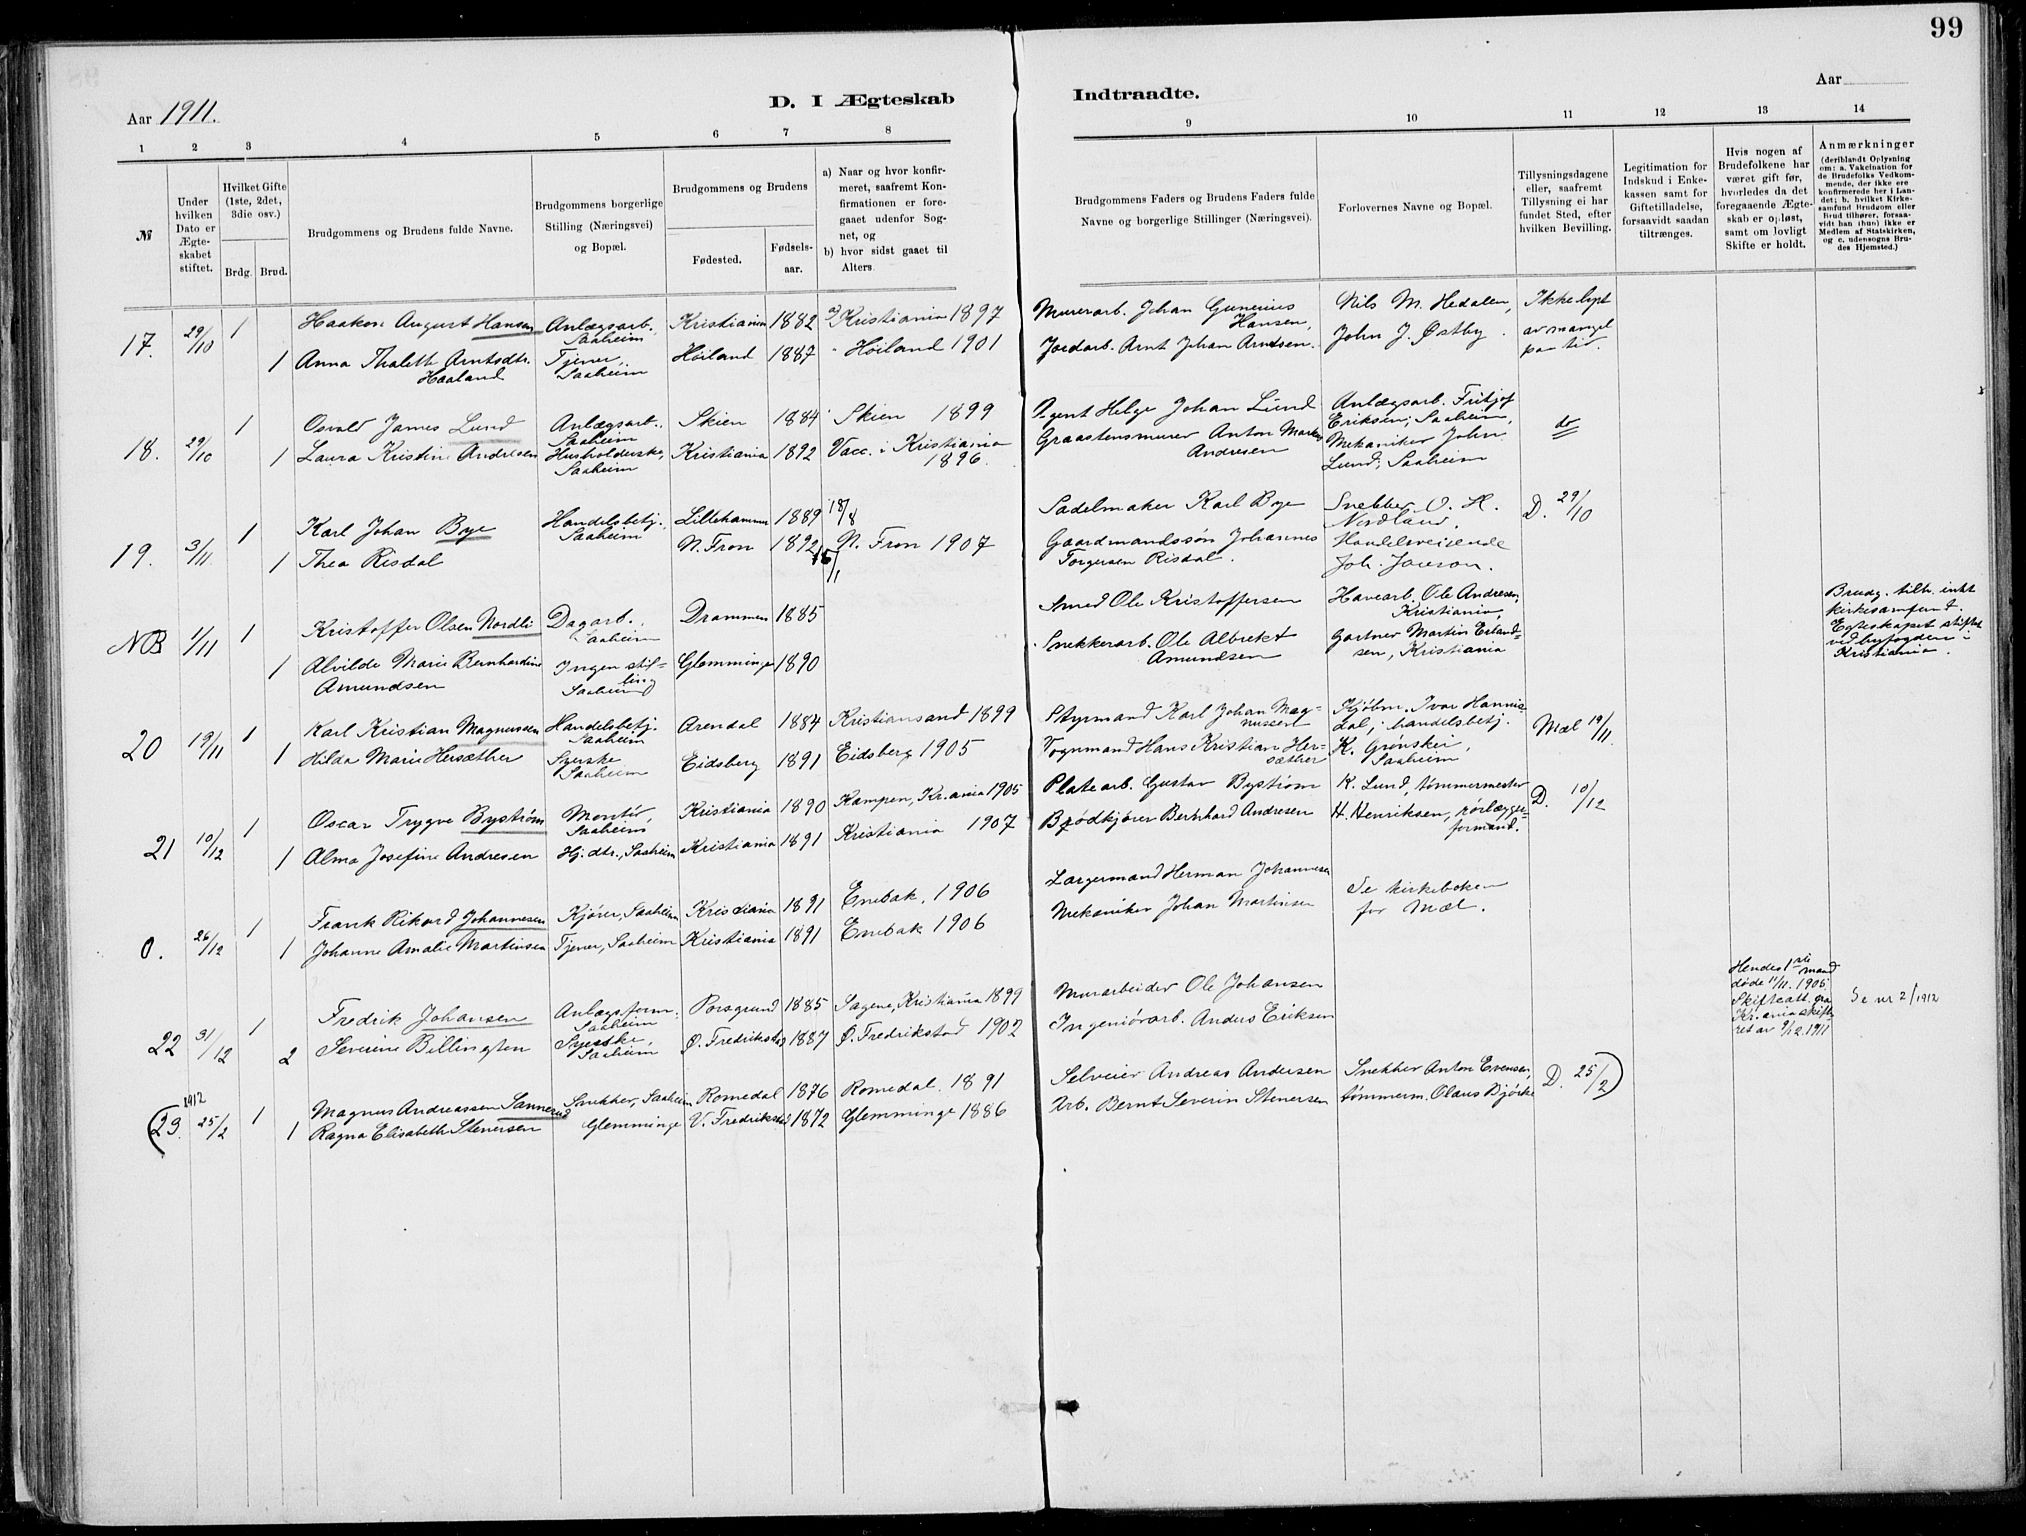 99
Aar 1911.
D. I Ægteskab
Indtraadte.
Aar
1 2 3 4 5 6 7 8 9 10 11 12 13 14
№
Under hvilken Dato er Ægteskabet stiftet.
Hvilket Gifte (1ste, 2det, 3die osv.)
Brdg. Brud.
Brudgommens og Brudens fulde Navne.
Brudgommens borgerlige Stilling (Næringsvei) og Bopæl.
Brudgommens og Brudens
Fødested.
Fødselsaar.
a) Naar og hvor konfirmeret, saafremt Konfirmationen er foregaaet udenfor Sognet, og
b) hvor sidst gaaet til Alters.
Brudgommens Faders og Brudens Faders fulde Navne og borgerlige Stillinger (Næringsvei).
Forlovernes Navne og Bopæl.
Tillysningsdagene eller, saafremt Tillysning ei har fundet Sted, efter hvilken Bevilling.
Legitimation for Indskud i Enkekassen samt for Giftetilladelse, forsaavidt saadan tiltrænges.
Hvis nogen af Brudefolkene har været gift før, hvorledes da det foregaaende Ægteskab er opløst, samt om lovligt Skifte er holdt.
Anmærkninger (deriblandt Oplysning om: a. Vakcination for de Brudefolks Vedkommende, der ikke ere konfirmerede her i Landet; b. hvilket Kirkesamfund Brudgom eller Brud tilhører, forsaavidt han (hun) ikke er Medlem af Statskirken, og c. udensogns Brudes Hjemsted.)
17. 29/10 1 Haakon August Hansen Anlægsarb. Saaheim Kristiania 1882 a) Kristiania 1897 Murerarb. Johan Gunerius Hansen, Nils M. Hedalen, Ikke lyst
1 Anna Thalette Arntsdtr. Haaland Tjener, Saaheim Höiland 1887 " Höiland 1901 Jordarb. Arnt Johan Arntsen. John J. Østby. av mangel paa tid.
18. 29/10 1 Osvald James Lund Anlægsarb. Saaheim Skien 1884 Skien 1899 Agent Helge Johan Lund Anlægsarb. Fritjof Eriksen, Saaheim, do
1 Laura Kristine Andresen Husholderske, Saaheim Kristiania 1892 Vacc. i Kristiania 1896. Graastensmurer Anton Markus Andresen Mekaniker John Lund, Saaheim
19. 3/11 1 Karl Johan Bye Handelsbetj. Saaheim Lillehammer 1889 18/8 Sadelmaker Karl Bye Snekker O. H. Nordland. D. 29/10
1 Thea Risdal N. Fron 1892 15/1 N. Fron 1907 Gaardmandssön Johannes Torgersen Risdal. Handelsreisende Joh. Jonson.
NB 1/11 1 Kristoffer Olsen Nordli Dagarb. Saaheim Drammen 1885 Smed Ole Kristoffersen Havearb. Ole Andresen, Kristiania, Brudg. tilh. intet kirkesamfund. Egteskapet stiftet ved byfogden i Kristiania.
1 Alvilde Marie Bernhardine Amundsen Ingen stilling Saaheim Glemminge 1890 Snekkerarb. Ole Albrekt Amundsen Gartner Martin Erlandsen, Kristiania
20 19/11 1 Karl Kristian Magnussen Handelsbetj. Saaheim Arendal 1884 Kristiansand 1899 Styrmand Karl Johan Magnussen Kjøbm. Ivar Hannisdal, handelsbetj. Mæl 19/11.
1 Hilda Marie Hersæther Syerske Saaheim Eidsberg 1891 Eidsberg 1905 Vognmand Hans Kristian Hersæther K. Grönskei, Saaheim
21 10/12 1 Oscar Trygve Byström Montör, Saaheim Kristiania 1890 Kampen, Kr.ania 1905 Platearb. Gustav Byström K. Lund, tömmermester D. 10/12
1 Alma Josefine Andresen Hj. dtr., Saaheim Kristiania 1891 Kristiania 1907 Brödkjörer Bernhard Andresen H. Henriksen, rörlæggerformand.
0. 26/12 1 Frank Rikard Johannesen Kjörer, Saaheim Kristiania 1891 Enebak, 1906 Largermand Herman Johannesen Se kirkeboken
1 Johanne Amalie Martinsen Tjener, Saaheim Kristiania 1891 Enebak 1906 Mekaniker Johan Martinsen for Mæl.
22 31/12 1 Fredrik Johansen Anlægsform. Saaheim Porsgrund 1885 Sagene, Kristiania 1899 Murarbeider Ole Johansen Hendes 1ste mand döde 11/11. 1905 Skifteatt. fra Kr.ania skifteret av 9/12.1911 Se nr 2/1912
2 Severine Billington Syerske, Saaheim Ø. Fredrikstad 1887 Ø. Fredrikstad 1902 Ingeniörarb. Anders Eriksen
(23. 1912 25/2 1 Magnus Andreassen Sannerud Snekker, Saaheim Romedal 1876 Romedal. 1891 Selveier Andreas Andersen Snekker Anton Evensen, D. 25/2)
1 Ragna Elisabeth Stenersen Glemminge V. Fredrikstad 1872 Glemminge 1886 Arb. Bernt Severin Stenersen tömmerm. Olaus Bjørke